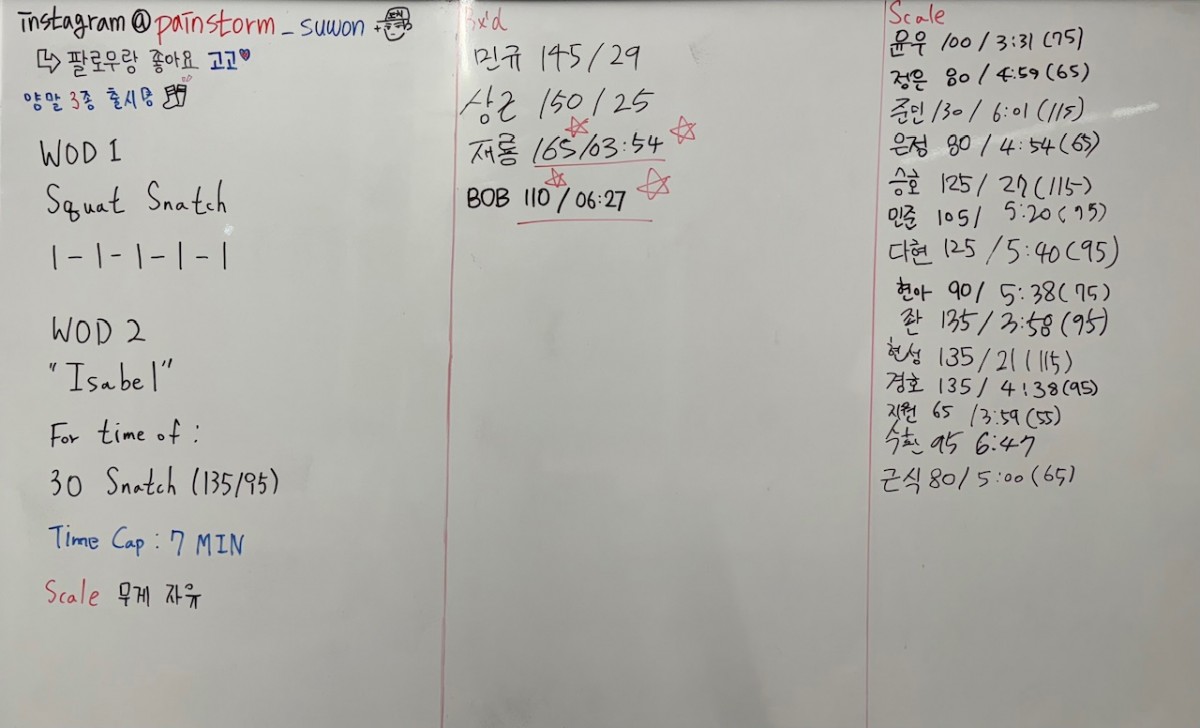 instagram@painstorm_suwon +
팔로우랑 좋아요 고고♥
양말 3종 출시중
WOD 1
Squat Snatch
1-1-1-1-1
WOD 2
"Isabel"
For time of:
30 Snatch (135/95)
Time Cap: 7 MIN
Scale 무게 자유
Rx'd
민규 145/29
상근 150/25
재룡 165/03:54
BOB 110/06:27
Scale
윤우 100/3:31(75)
정은 80/4:59(65)
준민 130/6:01(115)
은정 80/4:54(65)
승호 125/27(115)
민준 105/5:20(95)
다현 125/5:40(95)
현아 90/5:38(75)
좌 135/3:58(95)
현성 135/21(115)
경호 135/4:38(95)
지원 65/3:59(55)
수환 95 6:47
근식 80/5:00(65)